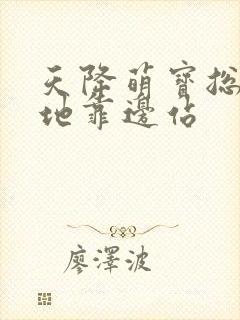 天降萌寶總
地靠邊佔
廖澤波